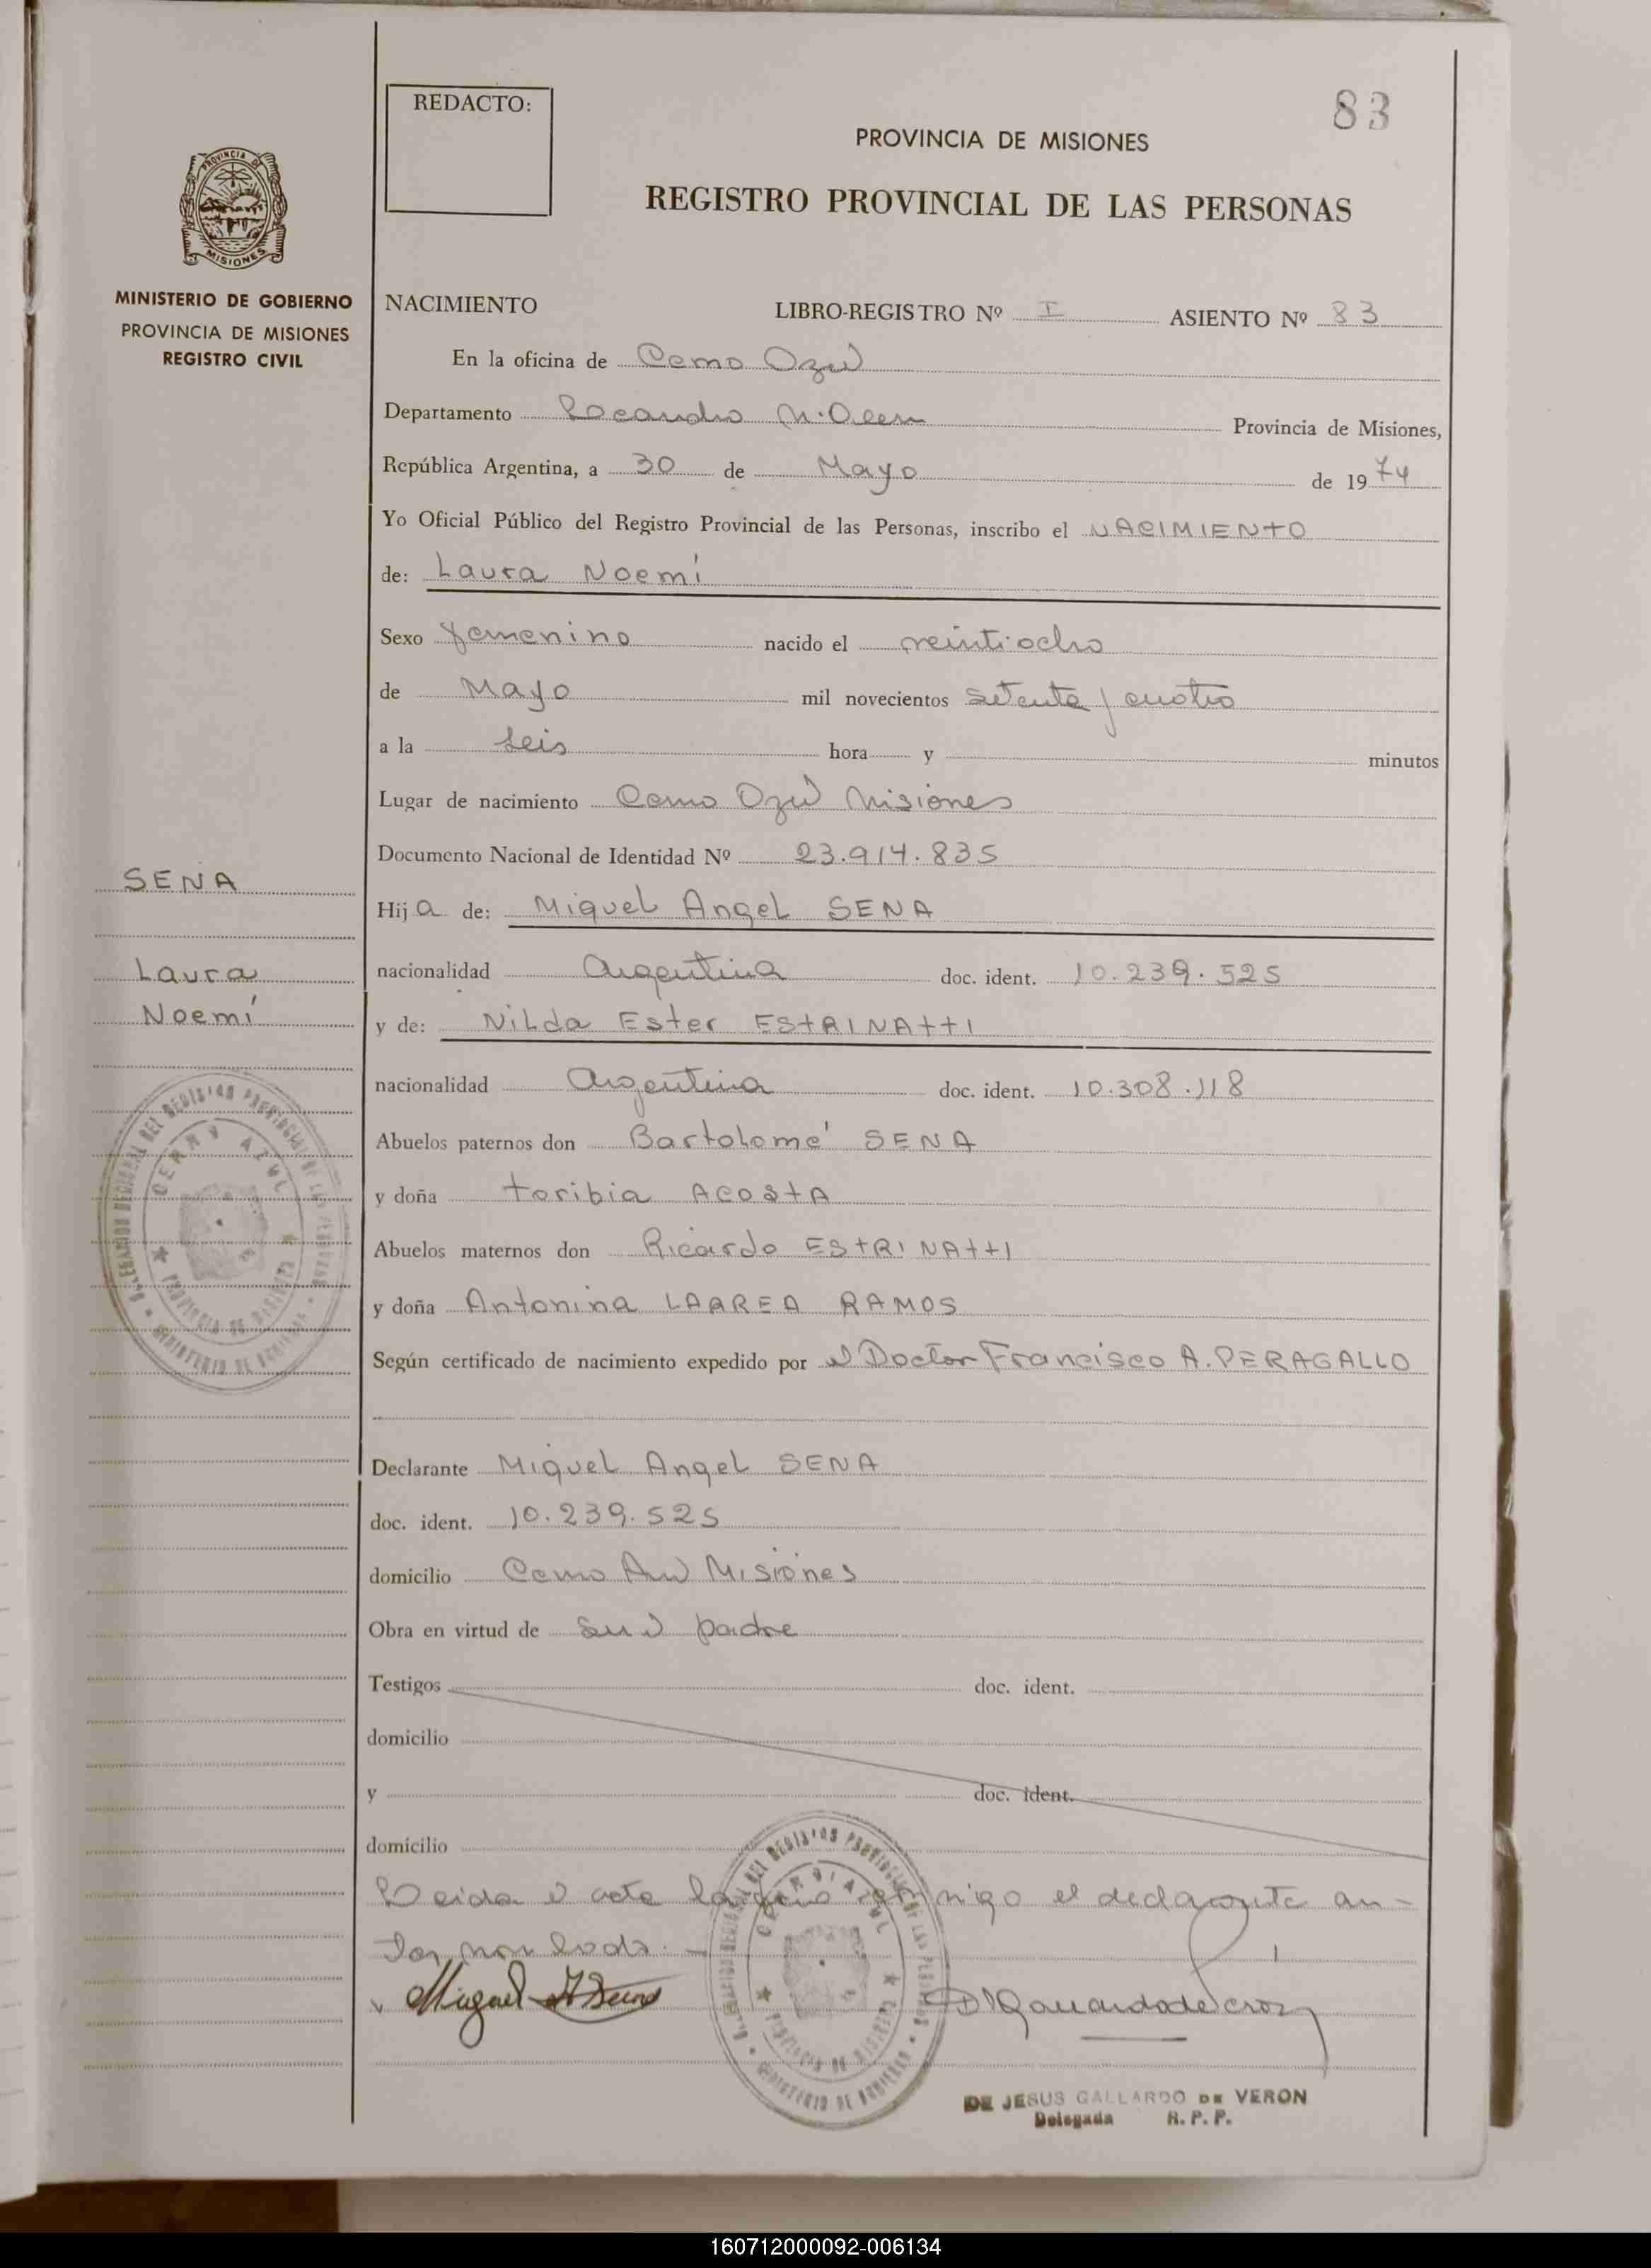 83
REDACTO:
PROVINCIA DE MISIONES
REGISTRO PROVINCIAL DE LAS PERSONAS
PROVINCIA DE
MISIONES
MINISTERIO DE GOBIERNO
PROVINCIA DE MISIONES
REGISTRO CIVIL
NACIMIENTO LIBRO-REGISTRO Nº I ASIENTO Nº 83
En la oficina de Cerro Azul
Departamento Leandro N. Alem Provincia de Misiones,
República Argentina, a 30 de Mayo de 1974
Yo Oficial Público del Registro Provincial de las Personas, inscribo el NACIMIENTO
de: Laura Noemí
Sexo femenino nacido el veintiocho
de Mayo mil novecientos setenta y cuatro
a la seis hora y minutos
Lugar de nacimiento Cerro Azul Misiones
Documento Nacional de Identidad Nº 23.914.835
SENA
Laura
Noemí
Hija de: Miguel Angel SENA
nacionalidad Argentina doc. ident. 10.239.525
y de: Nilda Ester ESTRINATTI
nacionalidad Argentina doc. ident. 10.308.118
Abuelos paternos don Bartolomé SENA
y doña Toribia ACOSTA
Abuelos maternos don Ricardo ESTRINATTI
y doña Antonina LARREA RAMOS
Según certificado de nacimiento expedido por el Doctor Francisco A. PERAGALLO
Declarante Miguel Angel SENA
doc. ident. 10.239.525
domicilio Cerro Azul Misiones
Obra en virtud de ser el padre
Testigos doc. ident.
domicilio
y doc. ident.
domicilio
Leida el acta la firma conmigo el declarante an-
tes nombrado.
Miguel A Sena
CERRO AZUL
DE JESUS GALLARDO DE VERON
Delegada R. P. P.
160712000092-006134